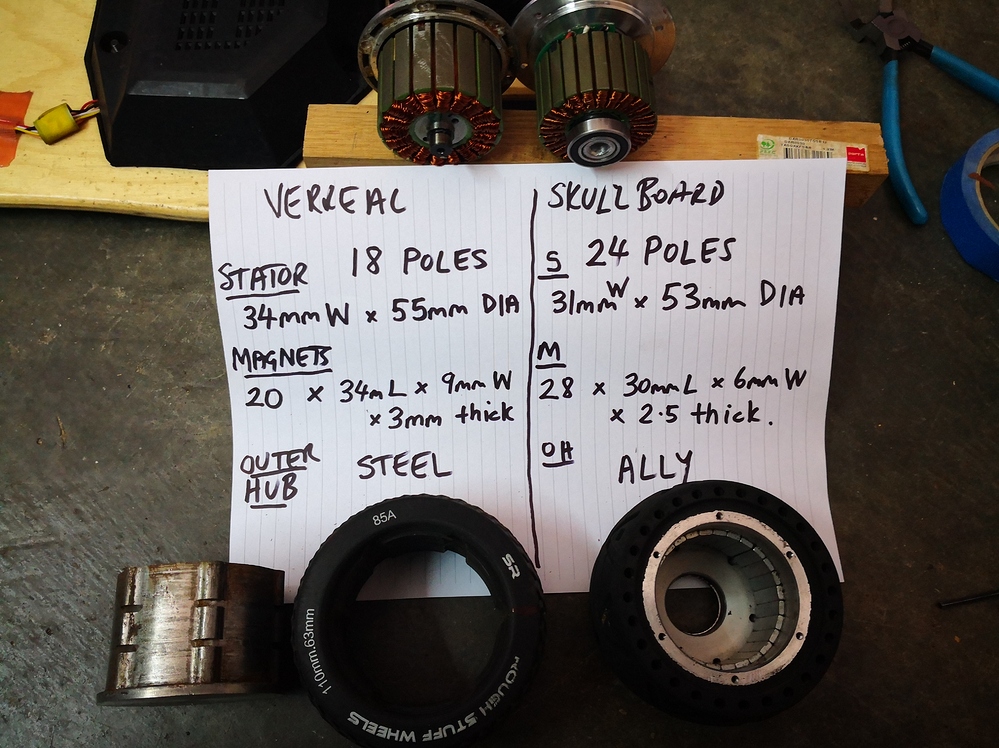 VERREAL
18 POLES
STATOR
34mm W x 55mm DIA
MAGNETS
20 x 34m L x 9mm W
x 3mm thick
OUTER
HUB
STEEL
SKULLBOARD
S 24 POLES
31mm W x 53mm DIA
M
28 x 30mm L x 6mm W
x 2.5 thick.
OH
ALLY
85A
SR
110mm.63mm
ROUGH STUFF WHEELS